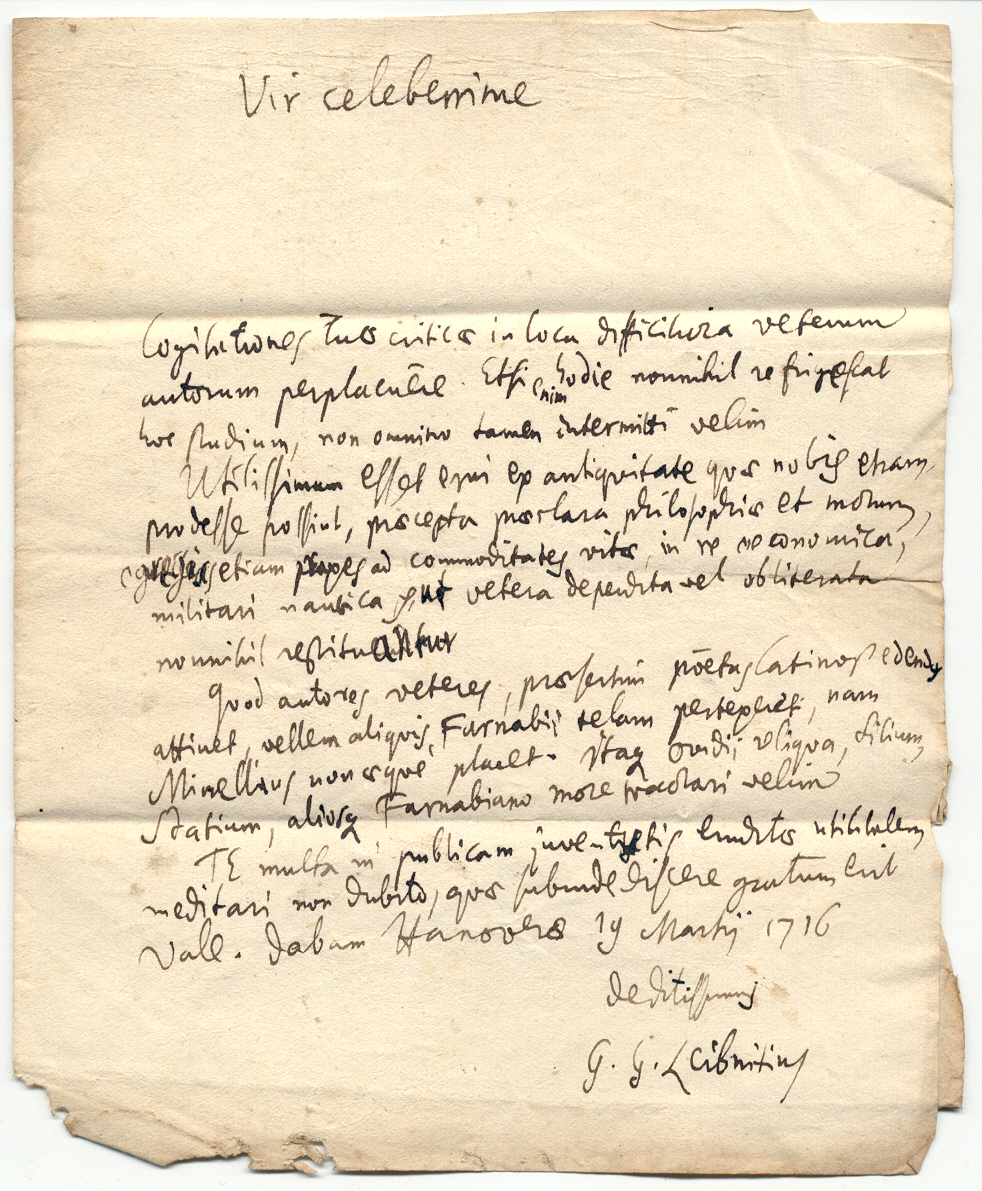 Vir celeberrime
Cogitationes Tuæ criticæ in loca difficiliora veterum
autorum perplacuêre. Etsi enim hodie nonnihil refrigescat
hoc studium, non omnino tamen intermitti velim
Utilissimum esset erui ex antiqvitate quæ nobis etiam
prodesse possint, præcepta præclara philosophiæ et morum,
etiam ad commoditates vitæ, in re œconomica,
militari nautica ut vetera deperdita vel obliterata
nonnihil restituantur
Qvod autores veteres, præsertim poëtas latinos edendos
attinet, vellem aliqvis Farnabii telam pertexeret, nam
Minellius non æqvè placet. Itaq Ovidii reliqva, Silium,
Statium, aliosq Farnabiano more tractari velim
TE multa in publicam juventutis eruditæ utilitatem
meditari non dubito, quæ subinde discere gratum erit
Vale. dabam Hanoveræ 19 Martij 1716
deditissimus
G. G. Leibnitius